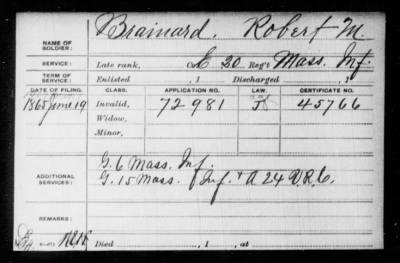 NAME OF SOLDIER: Brainard, Robert M.
SERVICE: Late rank, Co. E 20 Reg't Mass. Inf.
TERM OF SERVICE: Enlisted , 1 Discharged , 1
DATE OF FILING. CLASS. APPLICATION NO. LAW. CERTIFICATE NO.
1865 June 19 Invalid, 72 981 45766
Widow,
Minor,
ADDITIONAL SERVICES: G. 6 Mass. Inf.
G. 15 Mass. Inf. + A 24 V.R.C.
REMARKS:
Died , 1 , at